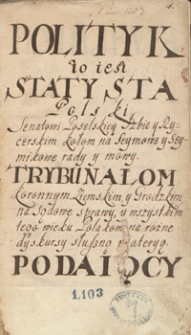 POLITYK
to iest
STATYSTA
Polski
Senatowi Poselskiey Izbie y Ry-
cerskim Kołom na Seymowe y Sey-
mikowe rady y mowy.
TRYBUNAŁOM
Koronnym, Ziemskim, y Grodzkim
na Sądowe sprawy, y wszystkim
tego wieku Polakom na rożne
dyskursy słuszną materyą.
PODAIĄCY
1.103